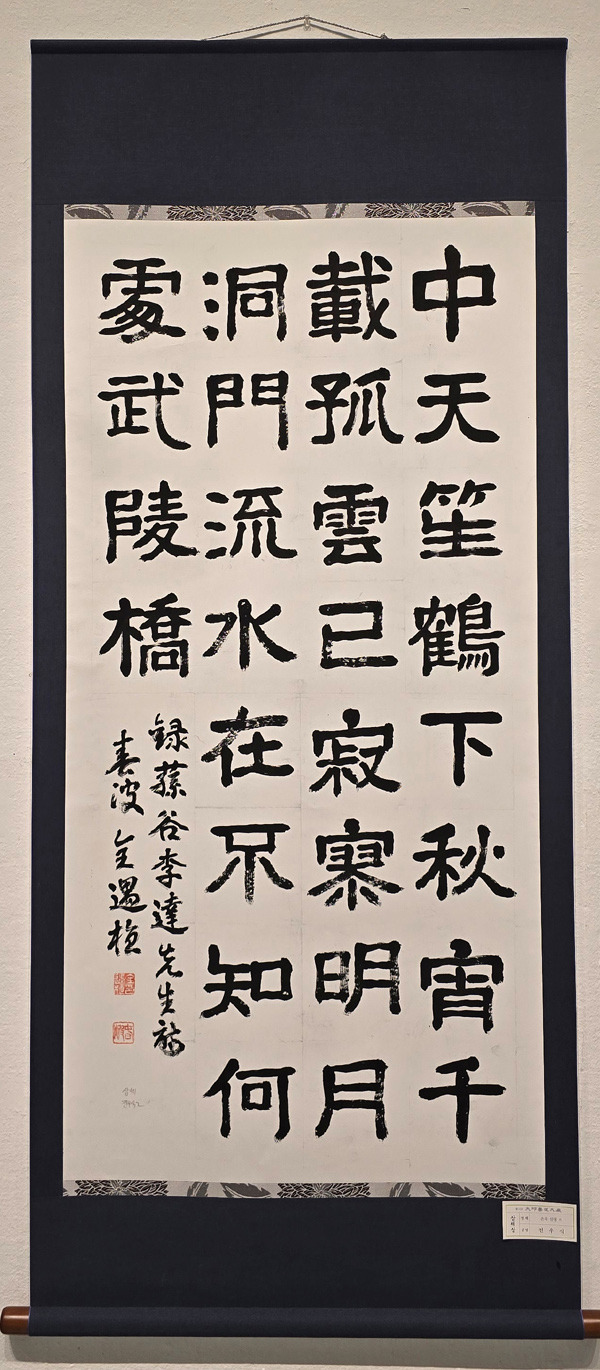 中天笙鶴下秋宵千
載孤雲已寂寥明月
洞門流水在不知何
處武陵橋
錄蓀谷李達先生詩
春波